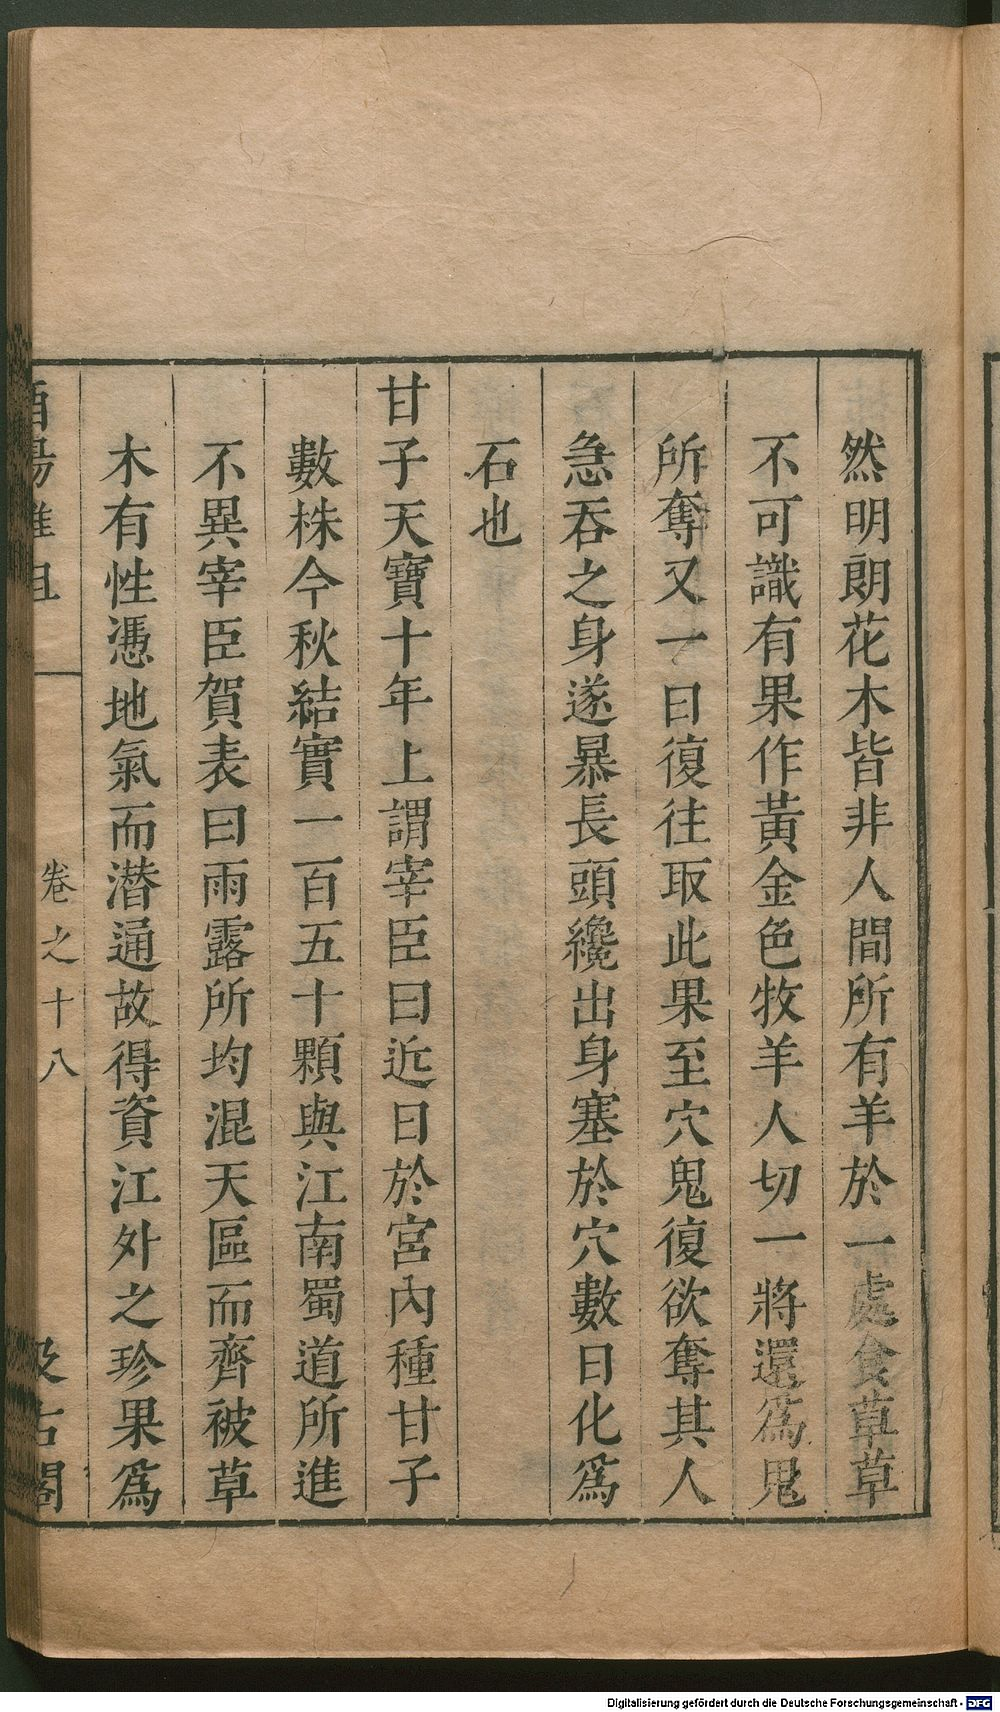 然明朗花木皆非人間所有羊於一處食草草
不可識有果作黃金色牧羊人切一將還爲鬼
所奪又一日復往取此果至穴鬼復欲奪其人
急吞之身遂暴長頭纔出身塞於穴數日化爲
石也
甘子天寶十年上謂宰臣曰近日於宮內種甘子
數株今秋結實一百五十顆與江南蜀道所進
不異宰臣賀表曰雨露所均混天區而齊被草
木有性憑地氣而潛通故得資江外之珍果爲
酉陽雜俎
卷之十八
汲古閣
Digitalisierung gefördert durch die Deutsche Forschungsgemeinschaft - DFG